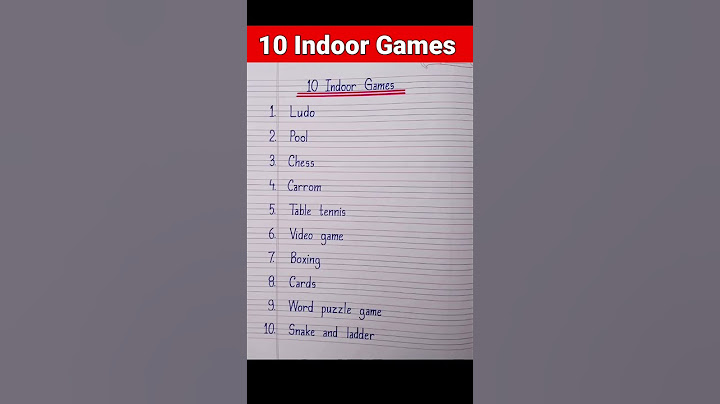 10 Indoor Games
10 Indoor Games
1. Ludo
2. Pool
3. Chess
4. Carrom
5. Table tennis
6. Video game
7. Boxing
8. Cards
9. Word puzzle game
10. Snake and ladder